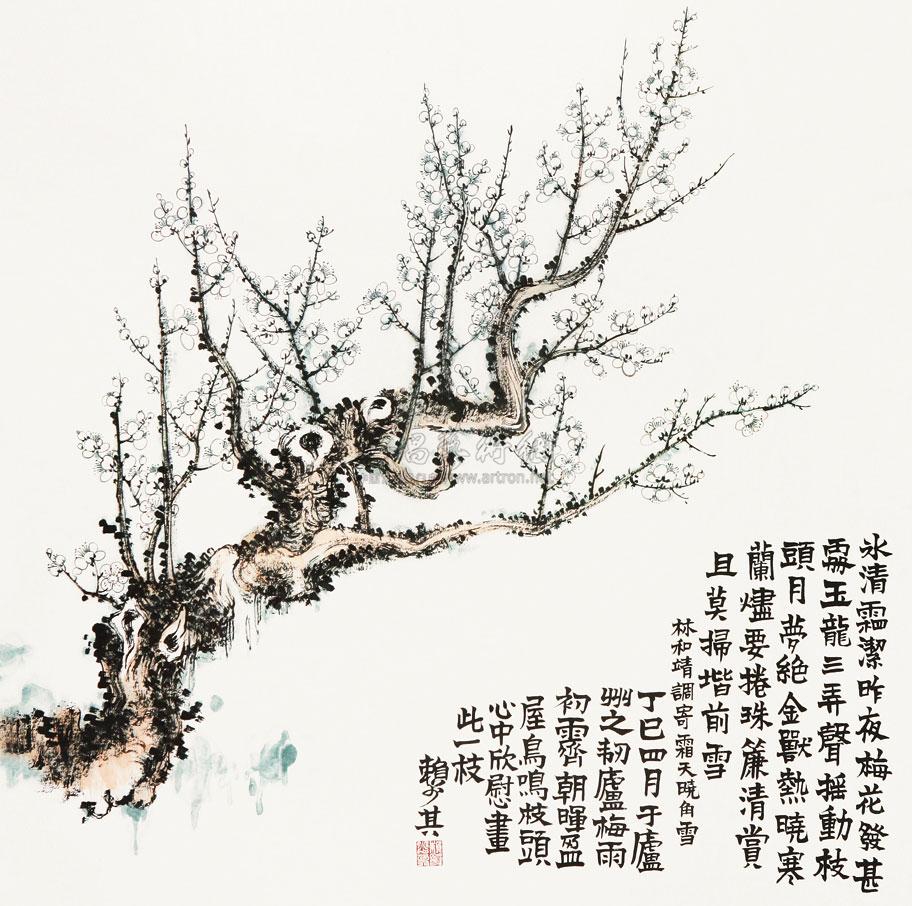 冰清霜潔昨夜梅花發甚
處玉龍三弄聲搖動枝
頭月夢絕金獸熱曉寒
蘭燼要捲珠簾清賞
且莫掃堦前雪
林和靖調寄霜天曉角雪
丁巳四月于廬
州之韌廬梅雨
初霽朝暉盈
屋鳥鳴枝頭
心中欣慰畫
此一枝
賴少其
www.artron.net